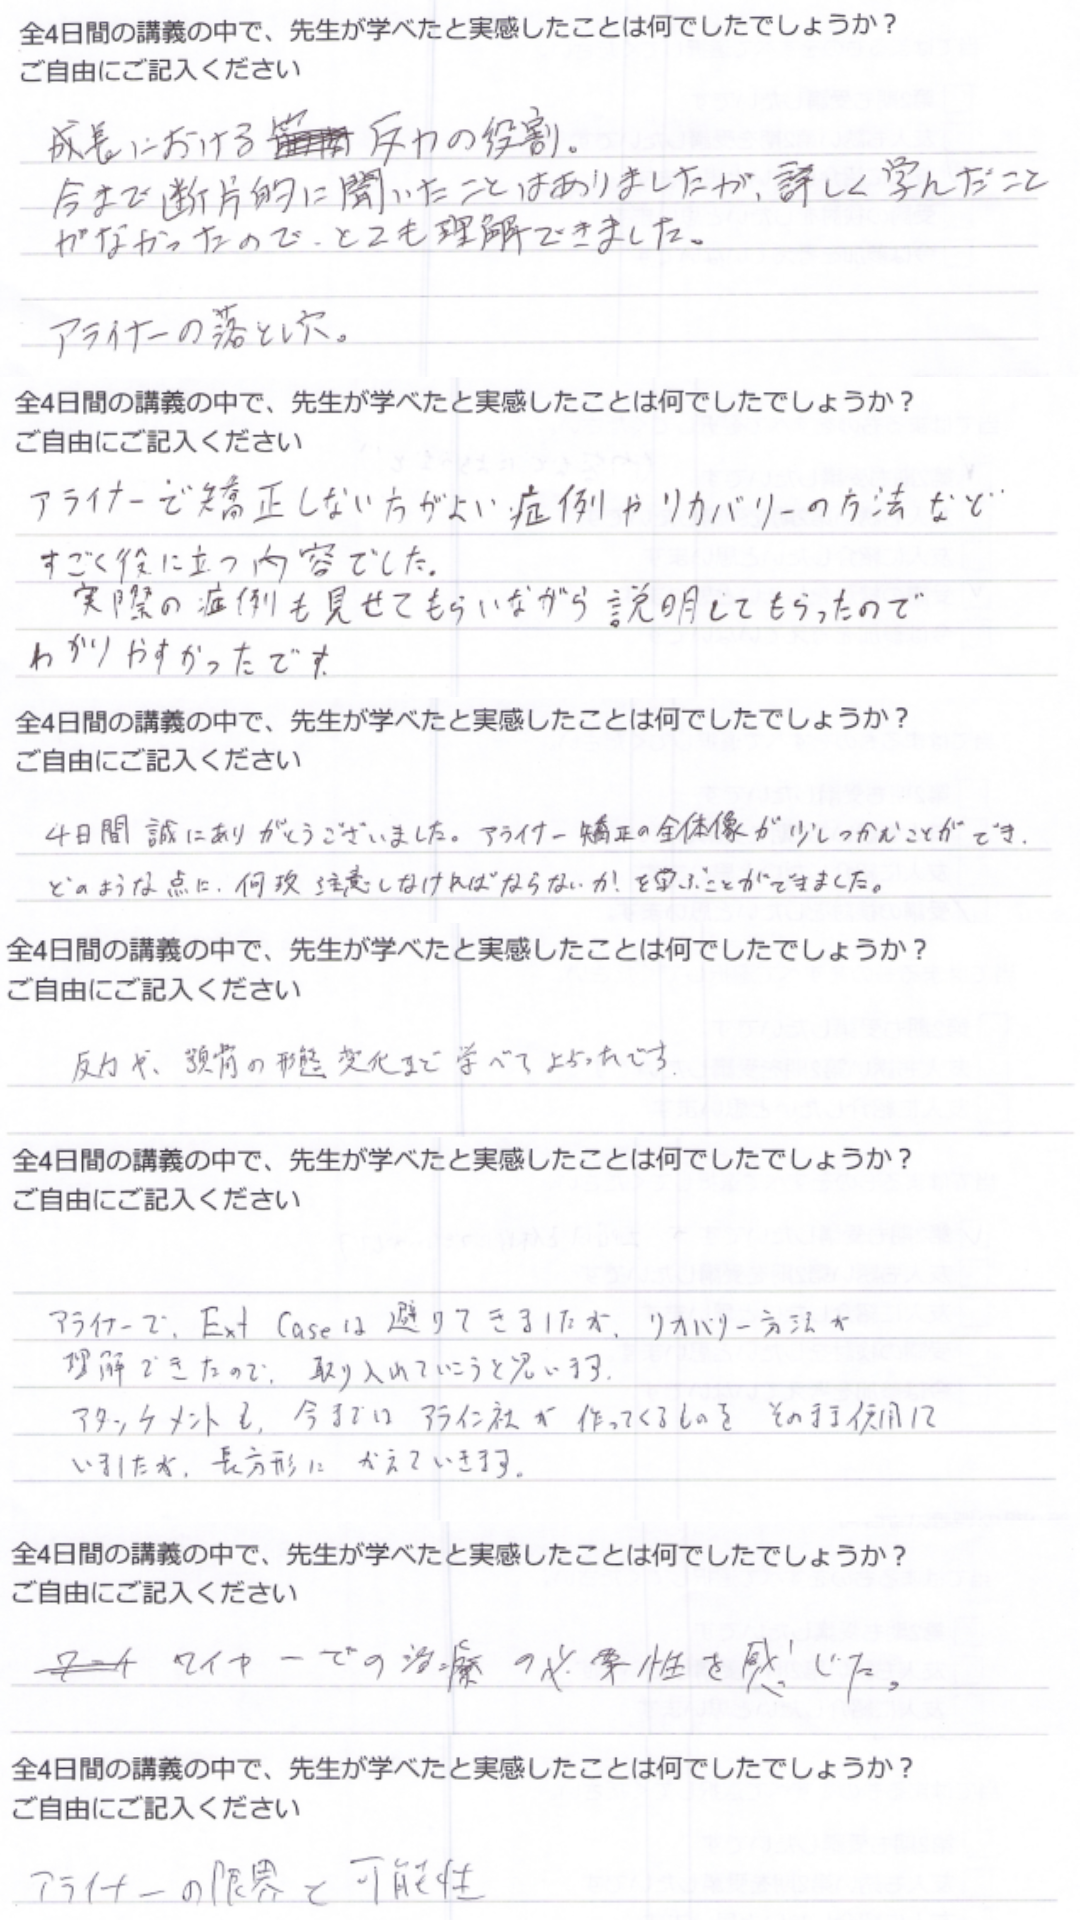 全4日間の講義の中で、先生が学べたと実感したことは何でしたでしょうか？
ご自由にご記入ください
成長における 反力の役割。
今まで断片的に聞いたことはありましたが、詳しく学んだこと
がなかったので、とても理解できました。
アライナーの落とし穴。
全4日間の講義の中で、先生が学べたと実感したことは何でしたでしょうか？
ご自由にご記入ください
アライナーで矯正しない方がよい症例やリカバリーの方法など
すごく役に立つ内容でした。
実際の症例も見せてもらいながら説明してもらったので
わかりやすかったです
全4日間の講義の中で、先生が学べたと実感したことは何でしたでしょうか？
ご自由にご記入ください
4日間 誠にありがとうございました。アライナー矯正の全体像が少しつかむことができ、
どのような点に、何故注意しなければならないか！を学ぶことができました。
全4日間の講義の中で、先生が学べたと実感したことは何でしたでしょうか？
ご自由にご記入ください
反力や、顎骨の形態変化まで学べてよかったです
全4日間の講義の中で、先生が学べたと実感したことは何でしたでしょうか？
ご自由にご記入ください
アライナーで、Ext Caseは避けてきましたが、リカバリー方法が
理解できたので、取り入れていこうと思います。
アタッチメントも、今まではアライン社が作ってくるものをそのまま使用して
いましたが、長方形にかえていきます。
全4日間の講義の中で、先生が学べたと実感したことは何でしたでしょうか？
ご自由にご記入ください
ワイヤーでの治療の必要性を感じた。
全4日間の講義の中で、先生が学べたと実感したことは何でしたでしょうか？
ご自由にご記入ください
アライナーの限界と可能性